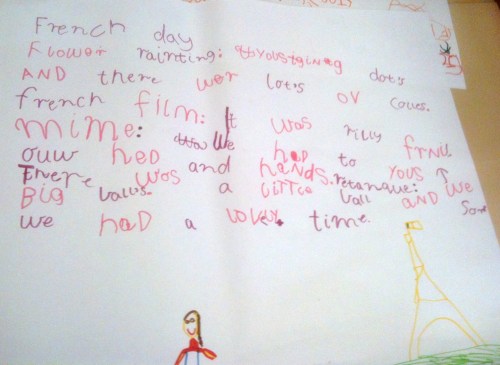 French day
Flower rainting: YOUSIGINEG dots
AND there wer lots ov coues.
french film: It was rilly frNU.
mime: We had to YOUS
ouw hed and hands. retanque:
There was a little ball AND we
Big balls.
we had a lovely time.